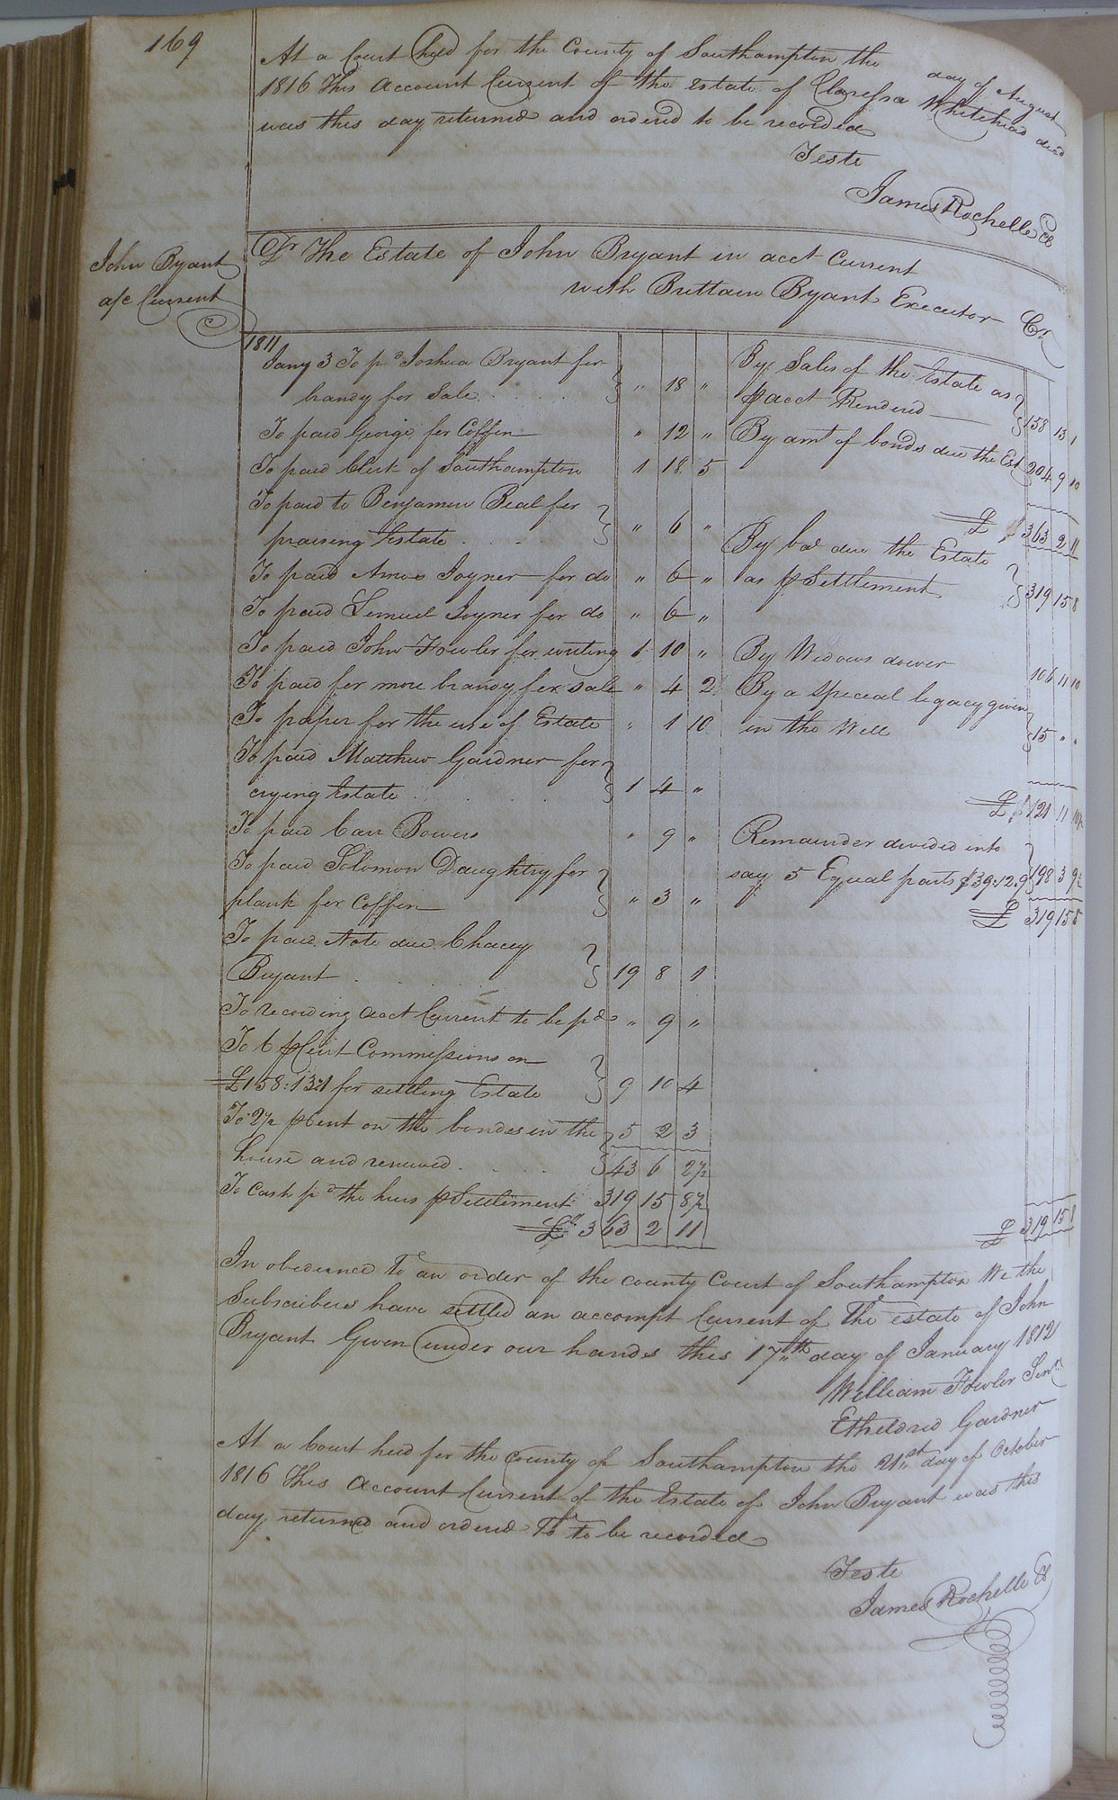 169
At a Court held for the County of Southampton the day of August
1816 This Account Current of the Estate of Clarissa Whitehead decd
was this day returned and ordered to be recorded
Teste
James Rochelle Cl
John Bryant
a/c Current
Dr The Estate of John Bryant in acct Current
with Brittain Bryant Executor Cr
1811
Jany 3 To pd Joshua Bryant for
brandy for Sale } " 18 "
To paid George for Coffin " 12 "
To paid Clerk of Southampton 1 18 5
To paid to Benjamin Beal for
praising Estate } " 6 "
To paid Amos Joyner for do " 6 "
To paid Lemuel Joyner for do " 6 "
To paid John Fowler for writing 1 10 "
To paid for more brandy for sale " 4 2
To paper for the use of Estate " 1 10
To paid Matthew Gardner for
crying Estate } 1 4 "
To paid Carr Bowers " 9 "
To paid Solomon Daughtry for
plank for Coffin } " 3 "
To paid Note due Chacey
Bryant } 19 8 1
To recording acct Current to be pd " 9 "
To 6 pCent Commissions on
£158:13:1 for settling Estate } 9 10 4
To 2½ pCent on the bonds in the 5 2 3
house and renewed } 43 6 2½
To Cash pd the heirs p Settlement 319 15 8½
£ 363 2 11
By Sales of the Estate as
p acct Rendered } 158 13 1
By amt of bonds due the Est 204 9 10
£ 363 2 11
By bal due the Estate
as p Settlement } 319 15 8
By Widows dower 106 11 10
By a special legacy given
in the Will } 15 " "
£ 121 11 10½
Remainder divided into
say 5 Equal parts £39:12:9 } 198 3 9½
£ 319 15 8
£ 319 15 8
In obedience to an order of the county Court of Southampton We the
Subscribers have settled an accompt Current of the estate of John
Bryant Given under our hands this 17th day of January 1812
William Fowler Senr
Etheldred Gardner
At a Court held for the County of Southampton the 21st day of October
1816 This Account Current of the Estate of John Bryant was this
day returned and ordered To to be recorded
Teste
James Rochelle Cl